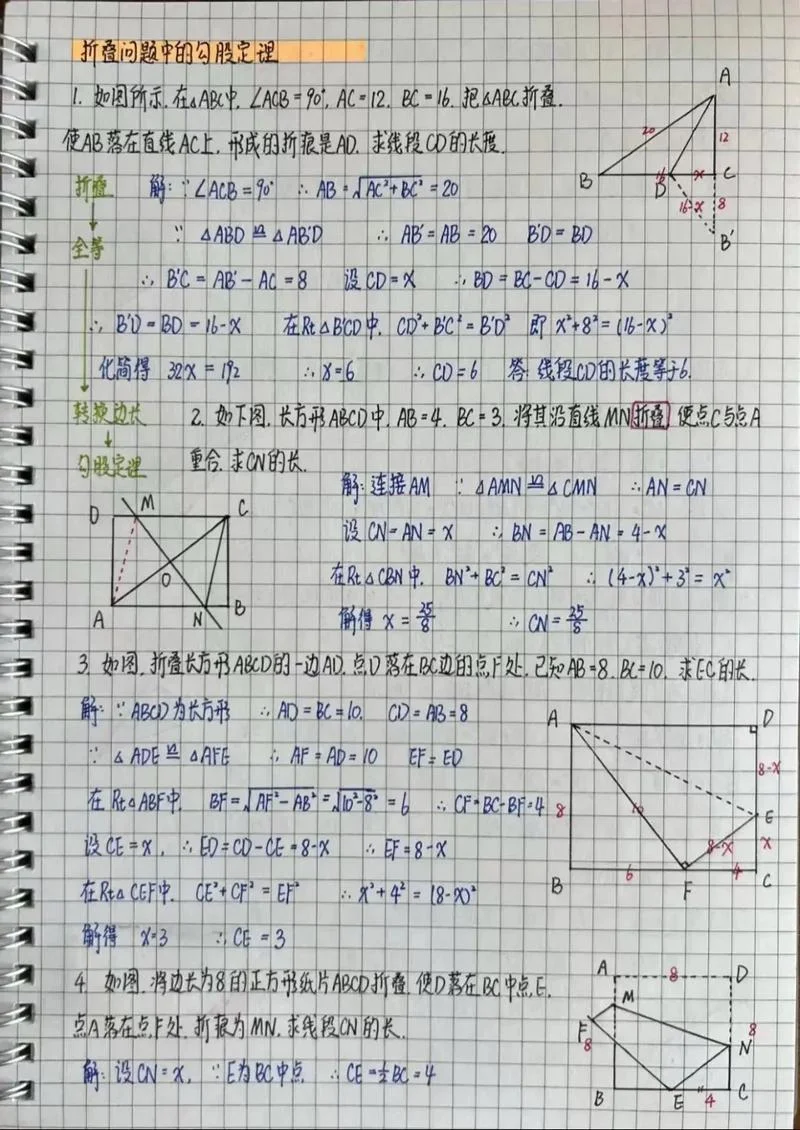 折叠问题中的勾股定理
1. 如图所示, 在△ABC中, ∠ACB=90°, AC=12, BC=16, 把△ABC折叠,
使AB落在直线AC上, 形成的折痕是AD, 求线段CD的长度.
折叠
解: ∵∠ACB=90° ∴AB=√AC²+BC²=20
全等
∵ △ABD≌△AB'D ∴AB'=AB=20 B'D=BD
∴B'C=AB'-AC=8 设CD=x ∴BD=BC-CD=16-x
∴B'D=BD=16-x 在Rt△B'CD中, CD²+B'C²=B'D² 即 x²+8²=(16-x)²
化简得 32x=192 ∴x=6 ∴CD=6 答: 线段CD的长度等于6.
A
20
12
B
16
D
x
C
16-x
8
B'
转换边长
勾股定理
2. 如下图, 长方形ABCD中, AB=4, BC=3, 将其沿直线MN折叠, 使点C与点A
重合, 求CN的长.
解: 连接AM ∵△AMN≌△CMN ∴AN=CN
设CN=AN=x ∴BN=AB-AN=4-x
在Rt△CBN中, BN²+BC²=CN² ∴(4-x)²+3²=x²
解得 x=25/8 ∴CN=25/8
D
M
C
O
A
N
B
3. 如图, 折叠长方形ABCD的一边AD, 点D落在BC边的点F处, 已知AB=8, BC=10, 求EC的长.
解: ∵ABCD为长方形 ∴AD=BC=10, CD=AB=8
∵△ADE≌△AFE ∴AF=AD=10 EF=ED
在Rt△ABF中, BF=√AF²-AB²=√10²-8²=6 ∴CF=BC-BF=4
设CE=x, ∴ED=CD-CE=8-x ∴EF=8-x
在Rt△CEF中, CE²+CF²=EF² ∴x²+4²=(8-x)²
解得 x=3 ∴CE=3
A
D
8-x
8
10
E
8-x
x
B
6
F
4
C
4. 如图, 将边长为8的正方形纸片ABCD折叠, 使D落在BC中点E,
点A落在点F处, 折痕为MN, 求线段CN的长.
解: 设CN=x, ∵E为BC中点 ∴CE=½BC=4
A
8
D
M
F
8
8
N
B
E
4
C